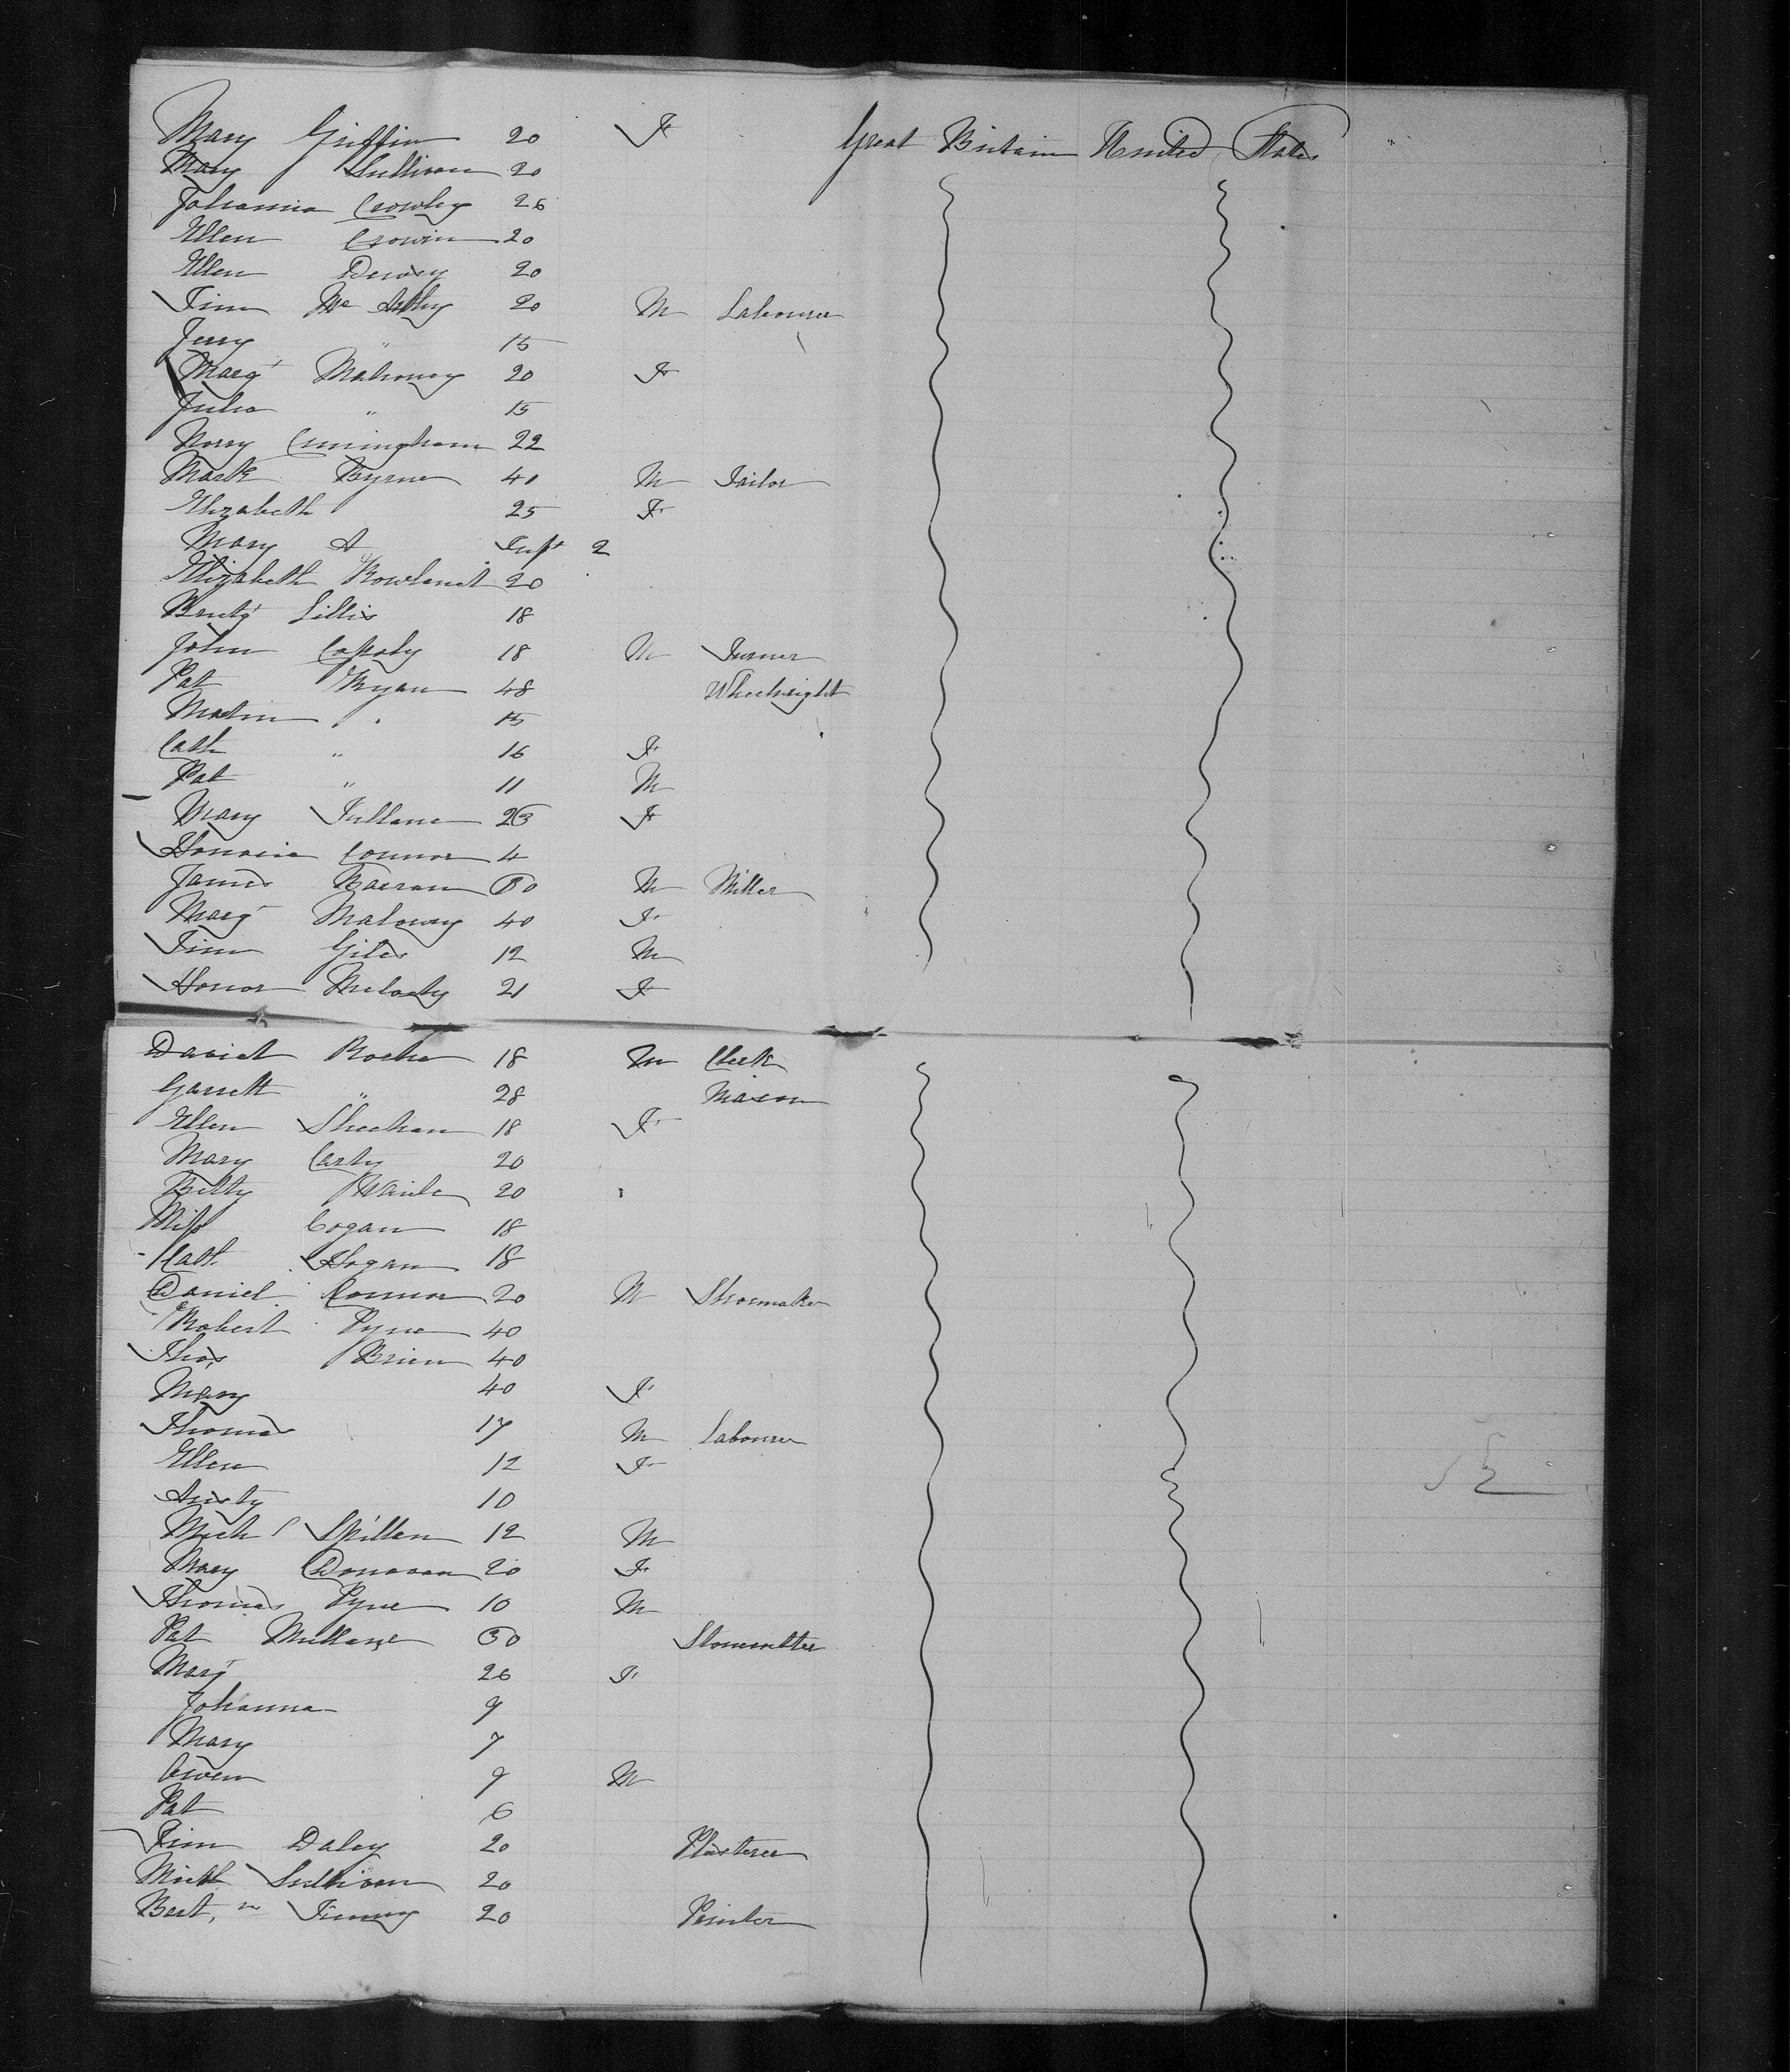 Mary Griffin 20 F Great Britain United States
Mary Sullivan 20
Johanna Crowley 26
Ellen Crowin 20
Ellen 20
Tim Mc 20 M Labourer
Jerry " 15
Marg't Mahoney 20 F
Julia " 15
Norry Cunningham 22
Mark Byrne 40 M Tailor
Elizabeth 25 F
Mary A Inft 2
Elizabeth Rowland 20
Bridg't Lillis 18
John 18 M Turner
Pat Ryan 48 Wheelwright
Martin " 15
Cath " 16 F
Pat " 11 M
Mary 23 F
Connor 4
James 30 M Miller
Marg't Malowny 40 F
Tim Giles 12 M
Honor Melody 21 F
David Roche 18 M Clerk
Garrett " 28 Mason
Ellen Sheehan 18 F
Mary Carty 20
Betty 20
Miss Cogan 18
Cath Hogan 18
Daniel Connor 20 M Shoemaker
Robert Pyne 40
Thos Brien 40
Mary 40 F
Thomas 17 M Labourer
Ellen 12 F
Ansty 10
Mich l Spillan 12 M
Mary Donovan 20 F
Thomas Pyne 10 M
Pat Mullane 30 Stonecutter
Marg't 26 F
Johanna 9
Mary 7
Owen 9 M
Pat 6
Tim Daley 20 Plasterer
Mich Sullivan 20
Bart, w 20 Painter